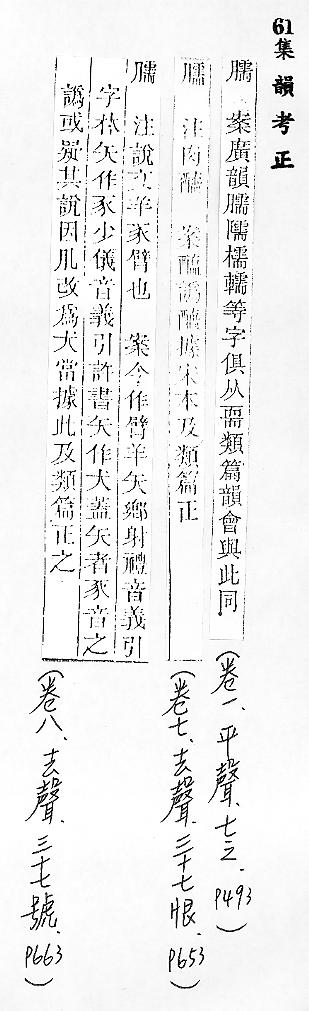 61集韻考正
臑 案廣韻臑隭檽轜等字俱从需類篇韻會與此同
(卷一、平聲、七之、P493)
臑 注肉 案 譌 據宋本及類篇正
(卷七、去聲、三十七恨、P653)
臑 注說文羊豕臂也 案今作臂羊矢鄉射禮音義引
字林矢作豕少儀音義引許書矢作大蓋矢者豕音之
譌或疑其說因肊改爲大當據此及類篇正之
(卷八、去聲、三十七號、P663)